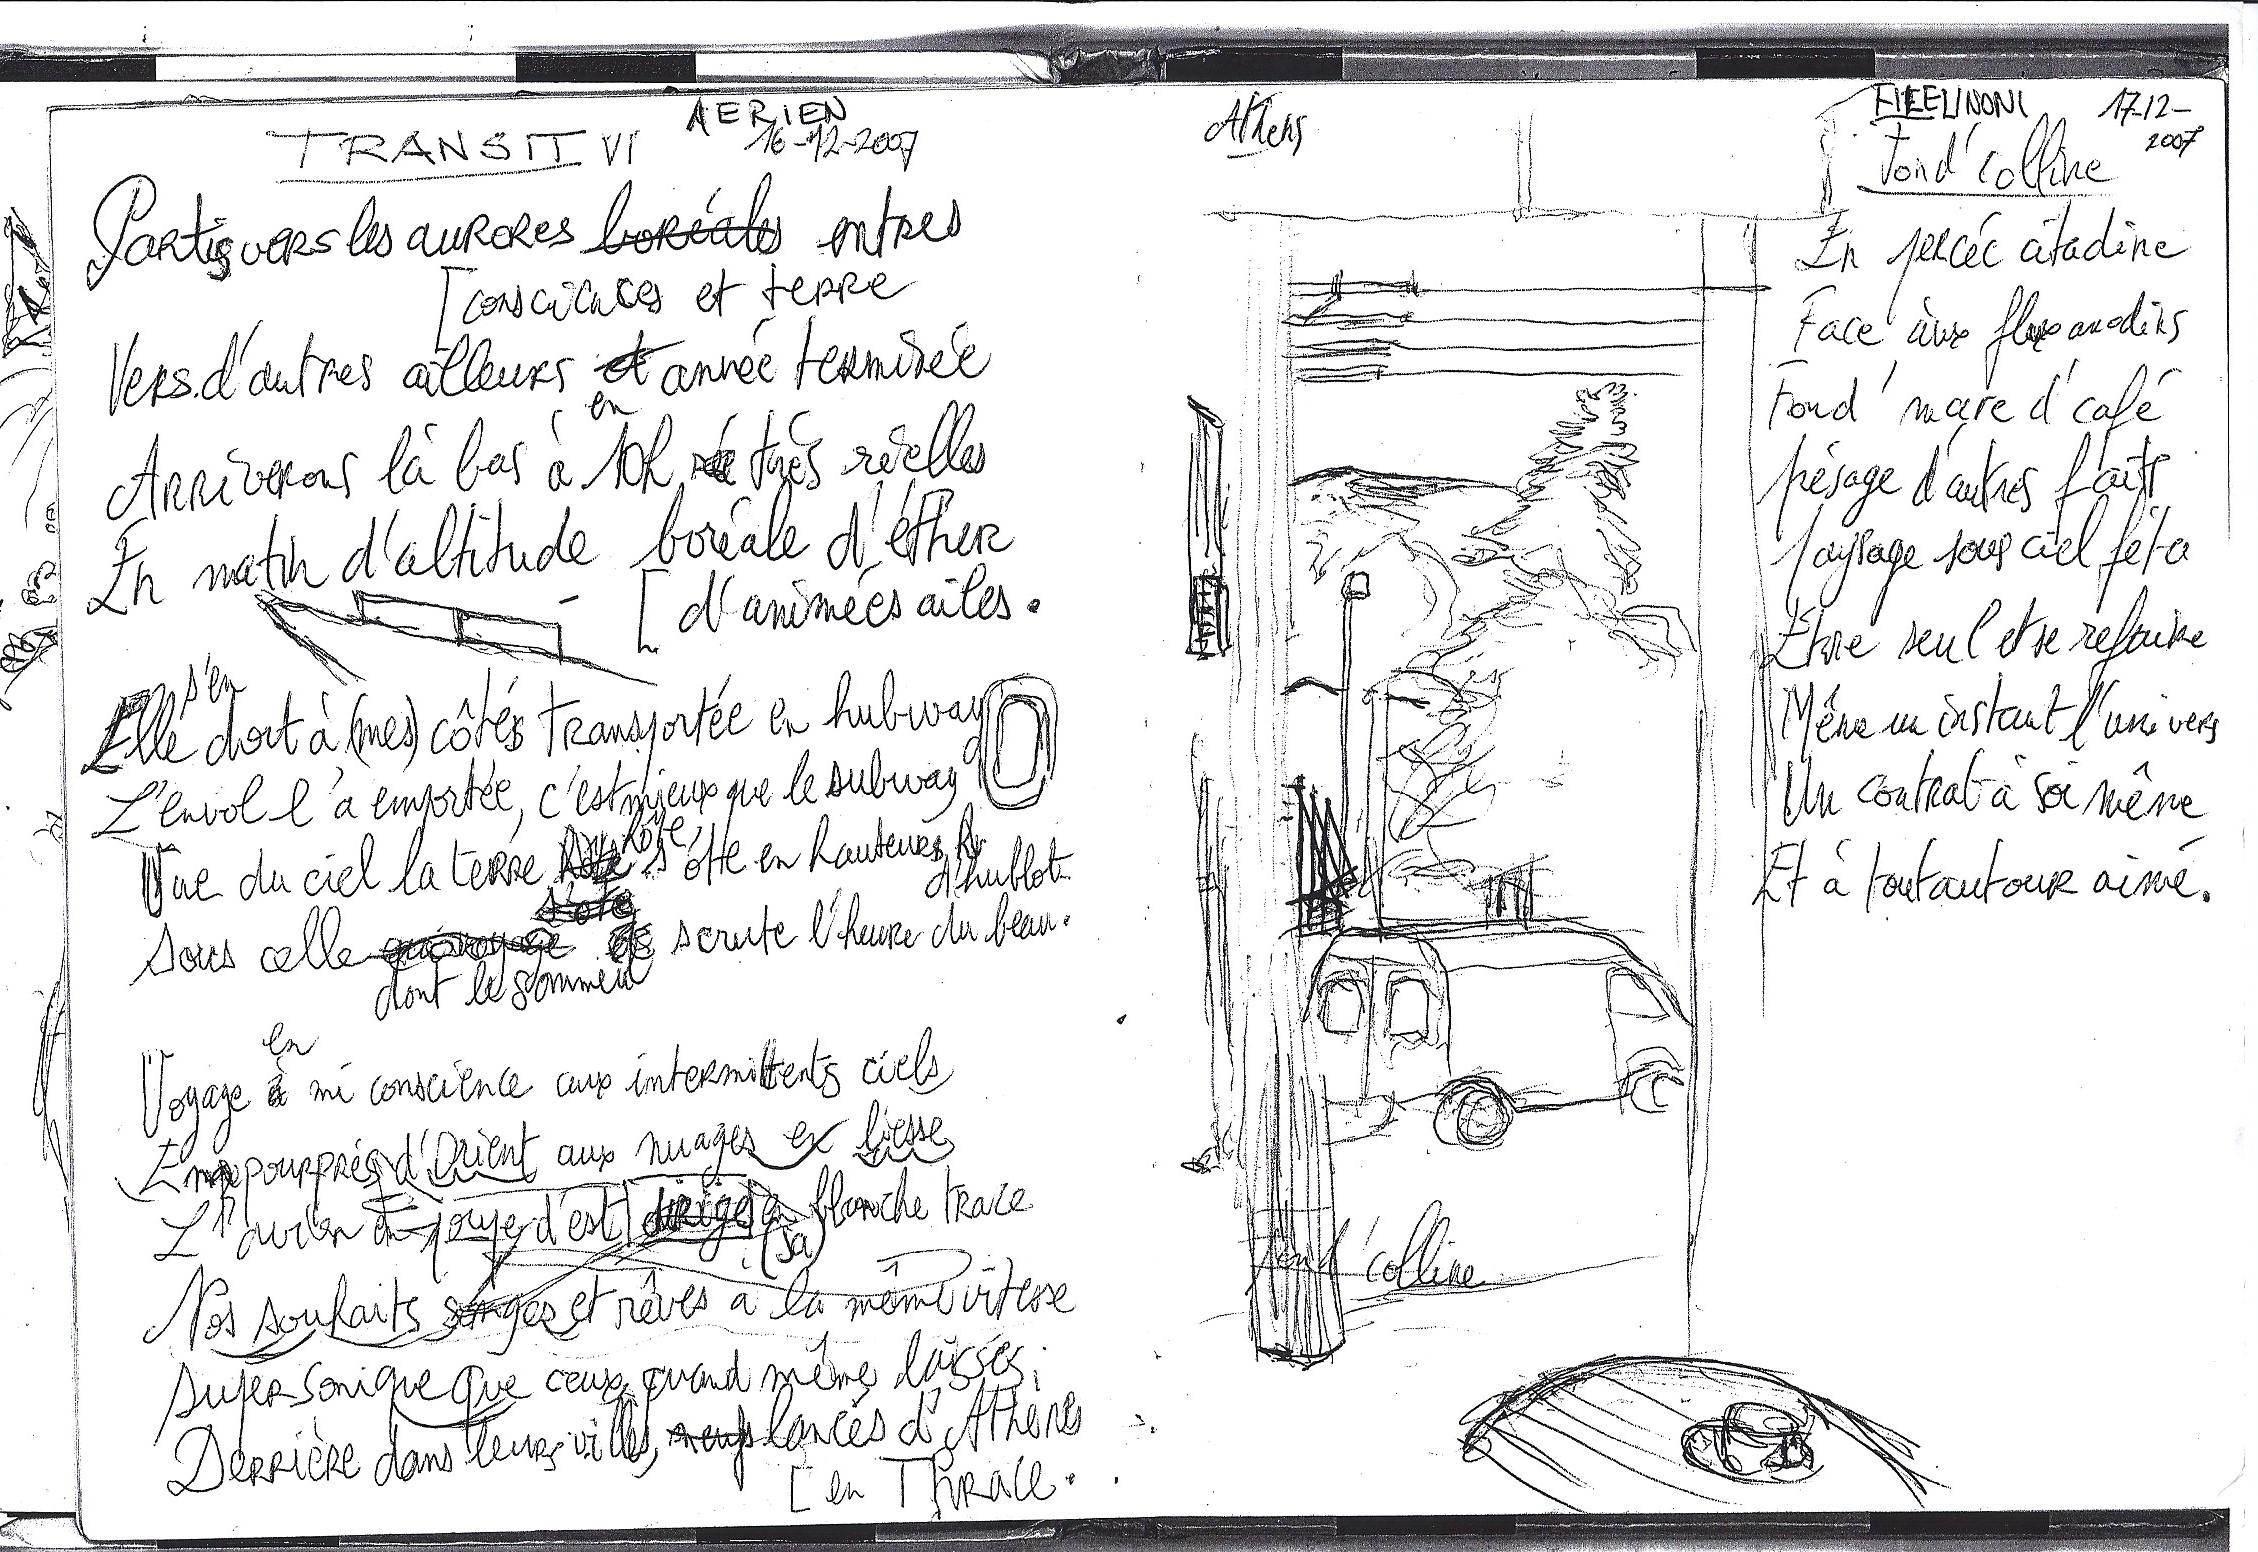 AERIEN
TRANSIT VI 16-12-2007
Partis vers les aurores boréales entres
[consciences et terre
Vers d'autres ailleurs et année terminée
en
Arriverons là bas à 10h très réelles
En matin d'altitude boréale d'éther
[d'animées ailes.
s'en
Elle dort à (mes) côtés transportée en hubway
L'envol l'a emportée, c'est mieux que le subway
Vue du ciel la terre s'ôte en hauteurs
d'hublot
s'ote
Sous celle scrute l'heure du beau.
dont le sommeil
en
Voyage à mi conscience aux intermittents ciels
Empourprés d'Orient aux nuages en liesse
L'avion d'est dirigé en blanche trace
(sa)
Nos souhaits songes et rêves a la même vitesse
supersonique que ceux quand même laissés,
Derrière dans leurs villes, lancés d'Athènes
[en Thrace.
Athens
FILELINONI 17-12-
2007
Fond' colline
En percée citadine
Face aux flux anodins
Fond' marc d'café
pésage d'autres faits
paysage sous ciel féta
Etre seul et se refaire
Même un instant l'univers
Un contrat à soi même
Et à toutautour aimé.
fond' colline